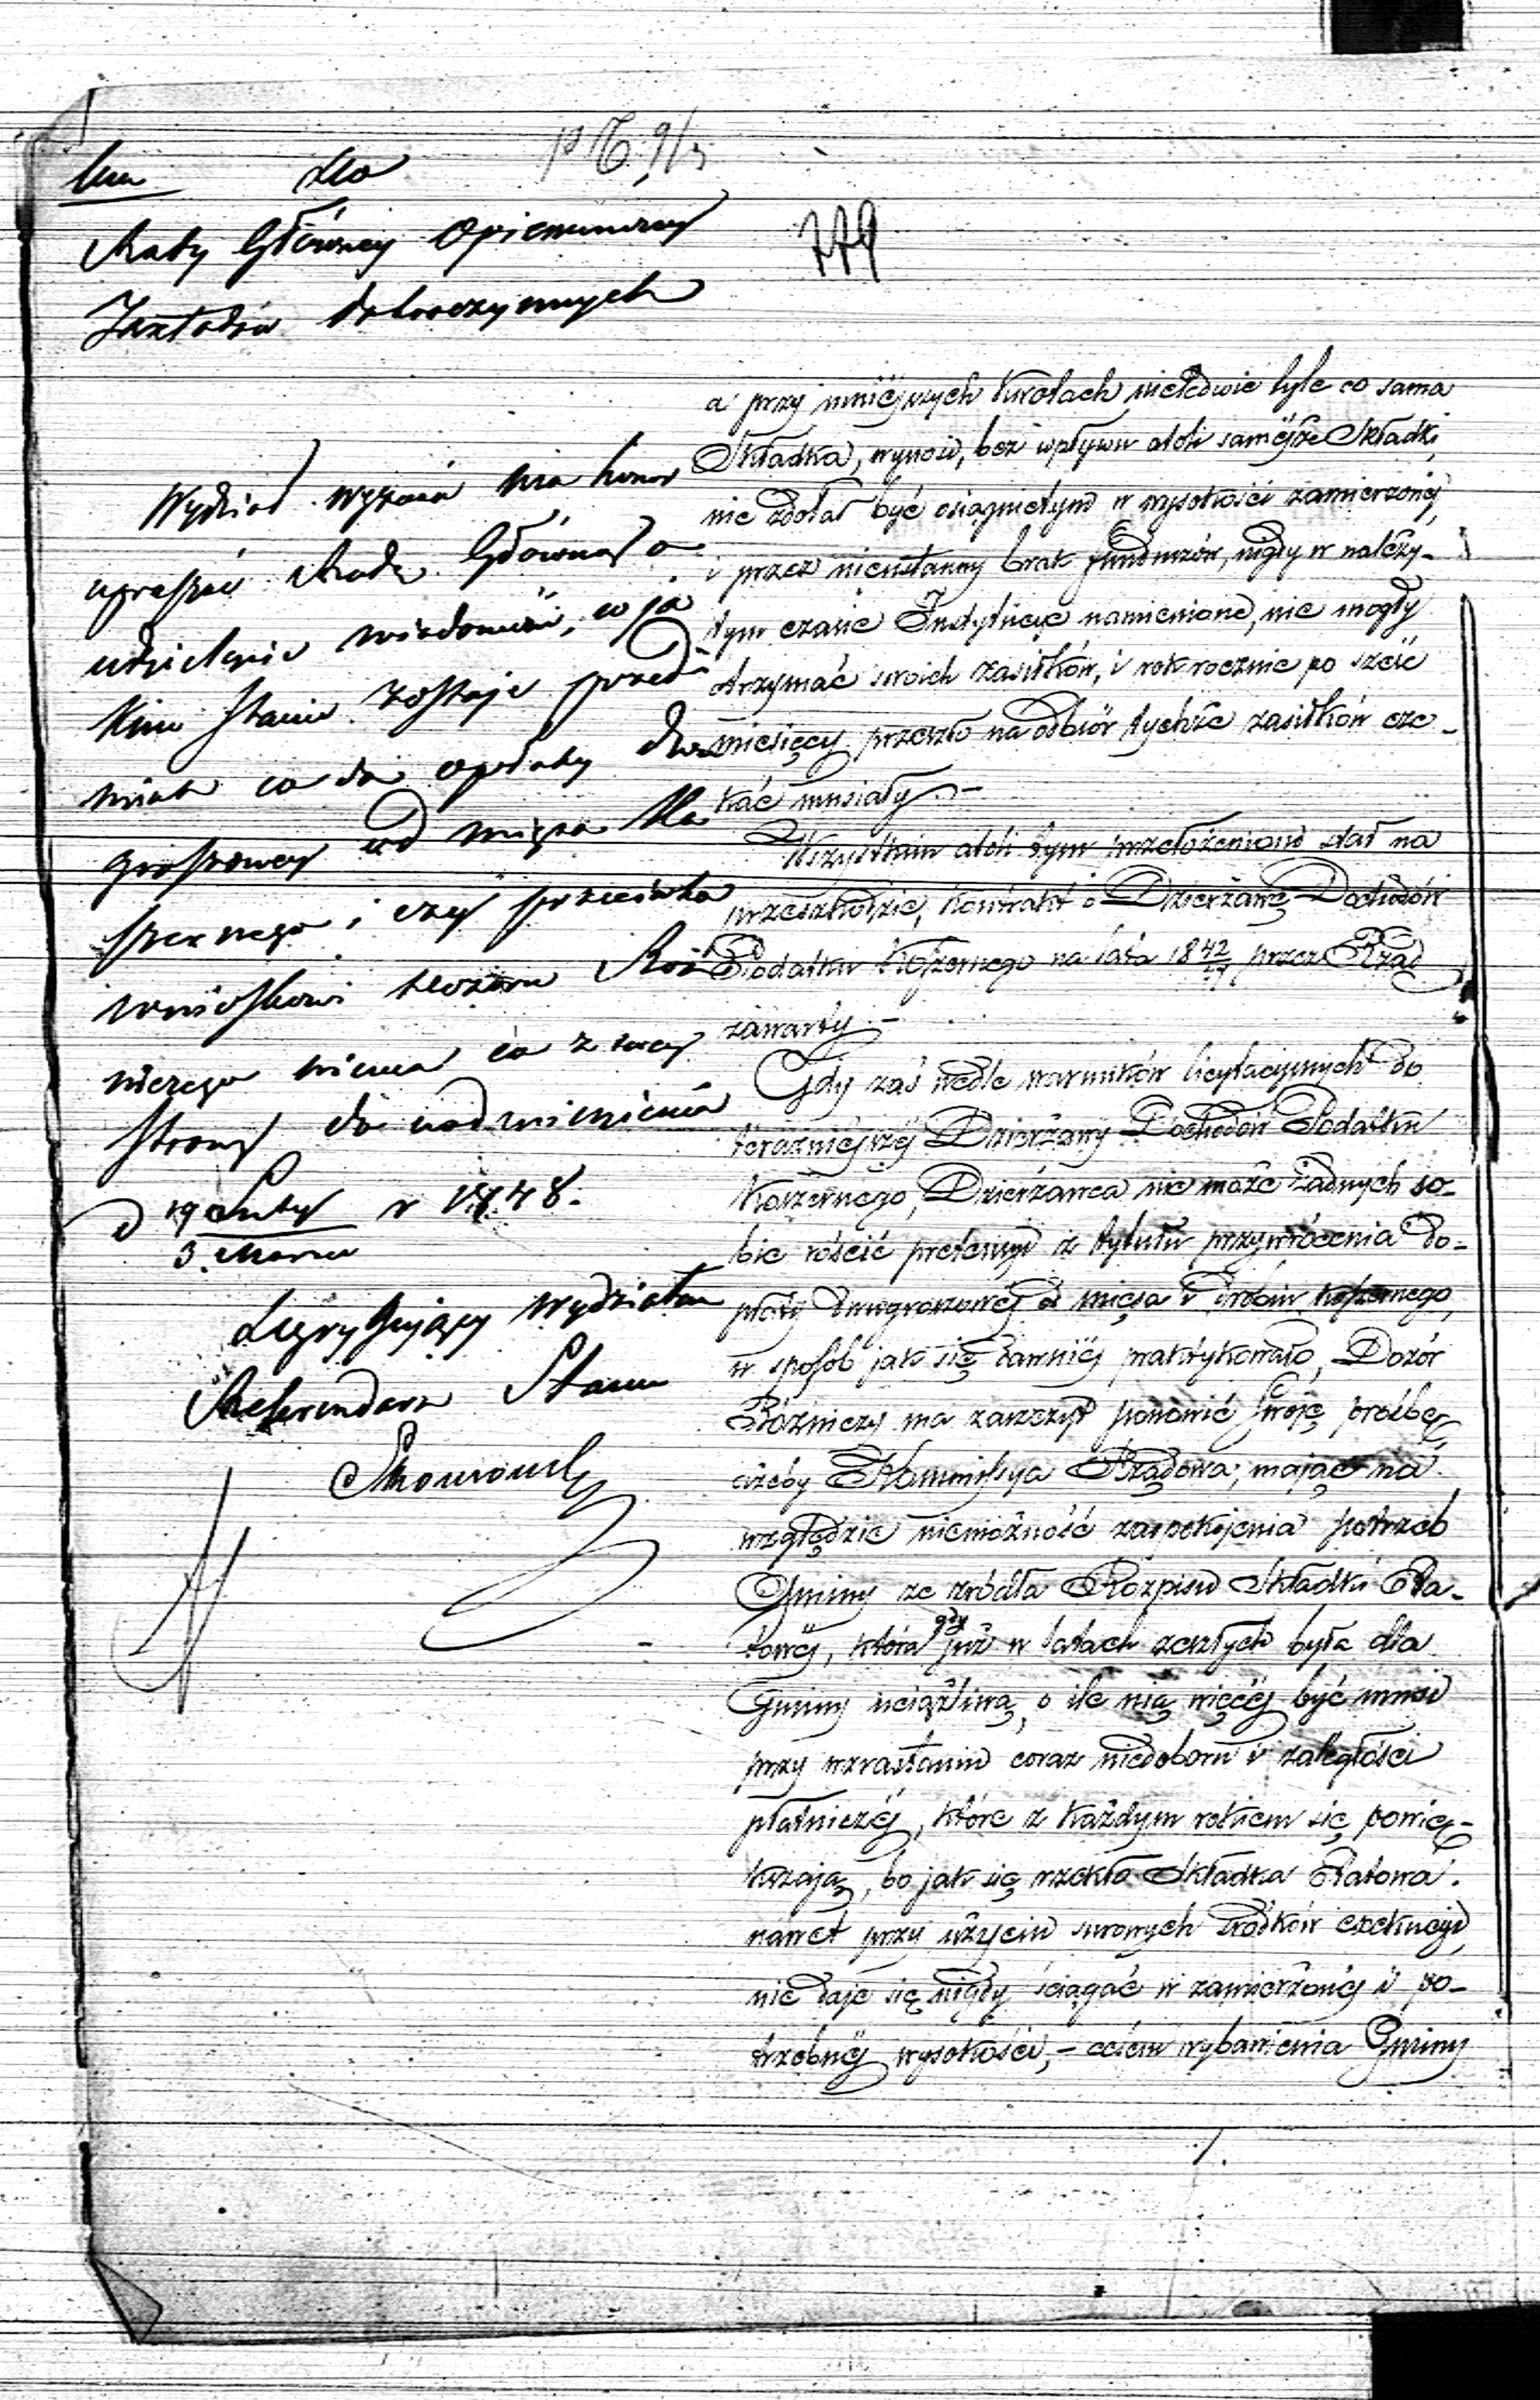 dto
Rady Głównej Opiekuńczej
Zakładów dobroczynnych
Wydział wyznań ma honor
uprosić Radę Główną o
udzielenie wiadomości, w ja
kim stanie zostaje przed
miot co do opłaty dwu
groszowej od mięsa ko
szernego i czy przeciwko
wnioskowi Dozoru Bóż
niczego niema co z swej
strony do nadmienienia
d 19 Lutego r 1848.
3. Marca
Dyrygujący wydziałem
Referendarz Stanu
779
a przy mniejszych kwotach nieledwie tyle co sama
Składka, wynosi, bez wpływu atoli samejże Składki,
nie zdołał być osiągniętym w wysokości zamierzonej
i przez nieustanny brak funduszów, nigdy w należy-
tym czasie Instytucye namienione, nie mogły
otrzymać swoich zasiłków, i rok rocznie po sześć
miesięcy przeszło na odbiór tychże zasiłków cze-
kać musiały.-
Wszystkim atoli tym przełożeniom stał na
przeszkodzie, kontrakt o Dzierżawę Dochodów
Podatku koszernego na lata 1842/47 przez Rząd
zawarty.-
Gdy zaś wedle warunków licytacyjnych do
teraźniejszej Dzierżawy Dochodów Podatku
Koszernego, Dzierżawca nie może żadnych so-
bie rościć pretensyi z tytułu przywrócenia do-
płaty dwugroszowej od mięsa i drobiu koszernego,
w sposób jak się dawniej praktykowało, Dozór
Bóżniczy ma zaszczyt ponowić swoję prośbę,
ażeby Kommissya Rządowa, mając na
względzie niemożność zaspokojenia potrzeb
Gminy ze źródła Rozpisu Składki Ra-
towej, która gdy już w latach zeszłych była dla
Gminy uciążliwą, o ile nią więcej być musi
przy wzrastaniu coraz niedoboru i zaległości
płatniczej, które z każdym rokiem się powięk-
kszają, bo jak się rzekło Składka Ratowa.
nawet przy użyciu surowych środków exekucyi,
nie daje się nigdy ściągać w zamierzonej i po-
trzebnej wysokości,- celem wybawienia Gminy